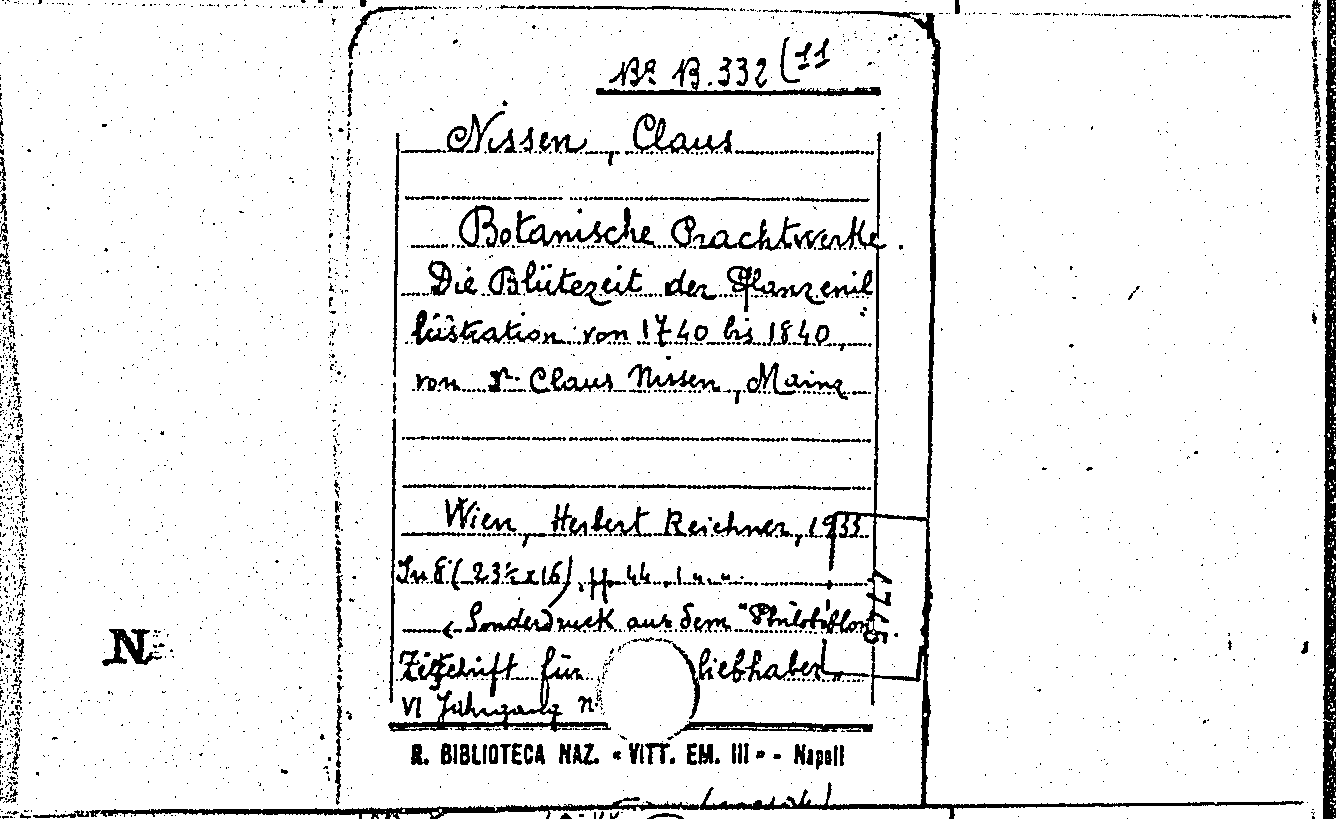 Bª B.332 (11
Nissen, Claus
Botanische Prachtwerke.
Die Blütezeit der Pflanzenil
lüstration von 1740 bis 1840,
von Dr. Claus Nissen, Mainz
Wien, Herbert Reichner, 1933
In 8 (23½x16), ff. 44.
Sonderdruck aus dem "Philobiblon"
Zeitschrift für liebhaber
VI Jahrgang n
47745
N
R. BIBLIOTECA NAZ. « VITT. EM. III » - Napoli